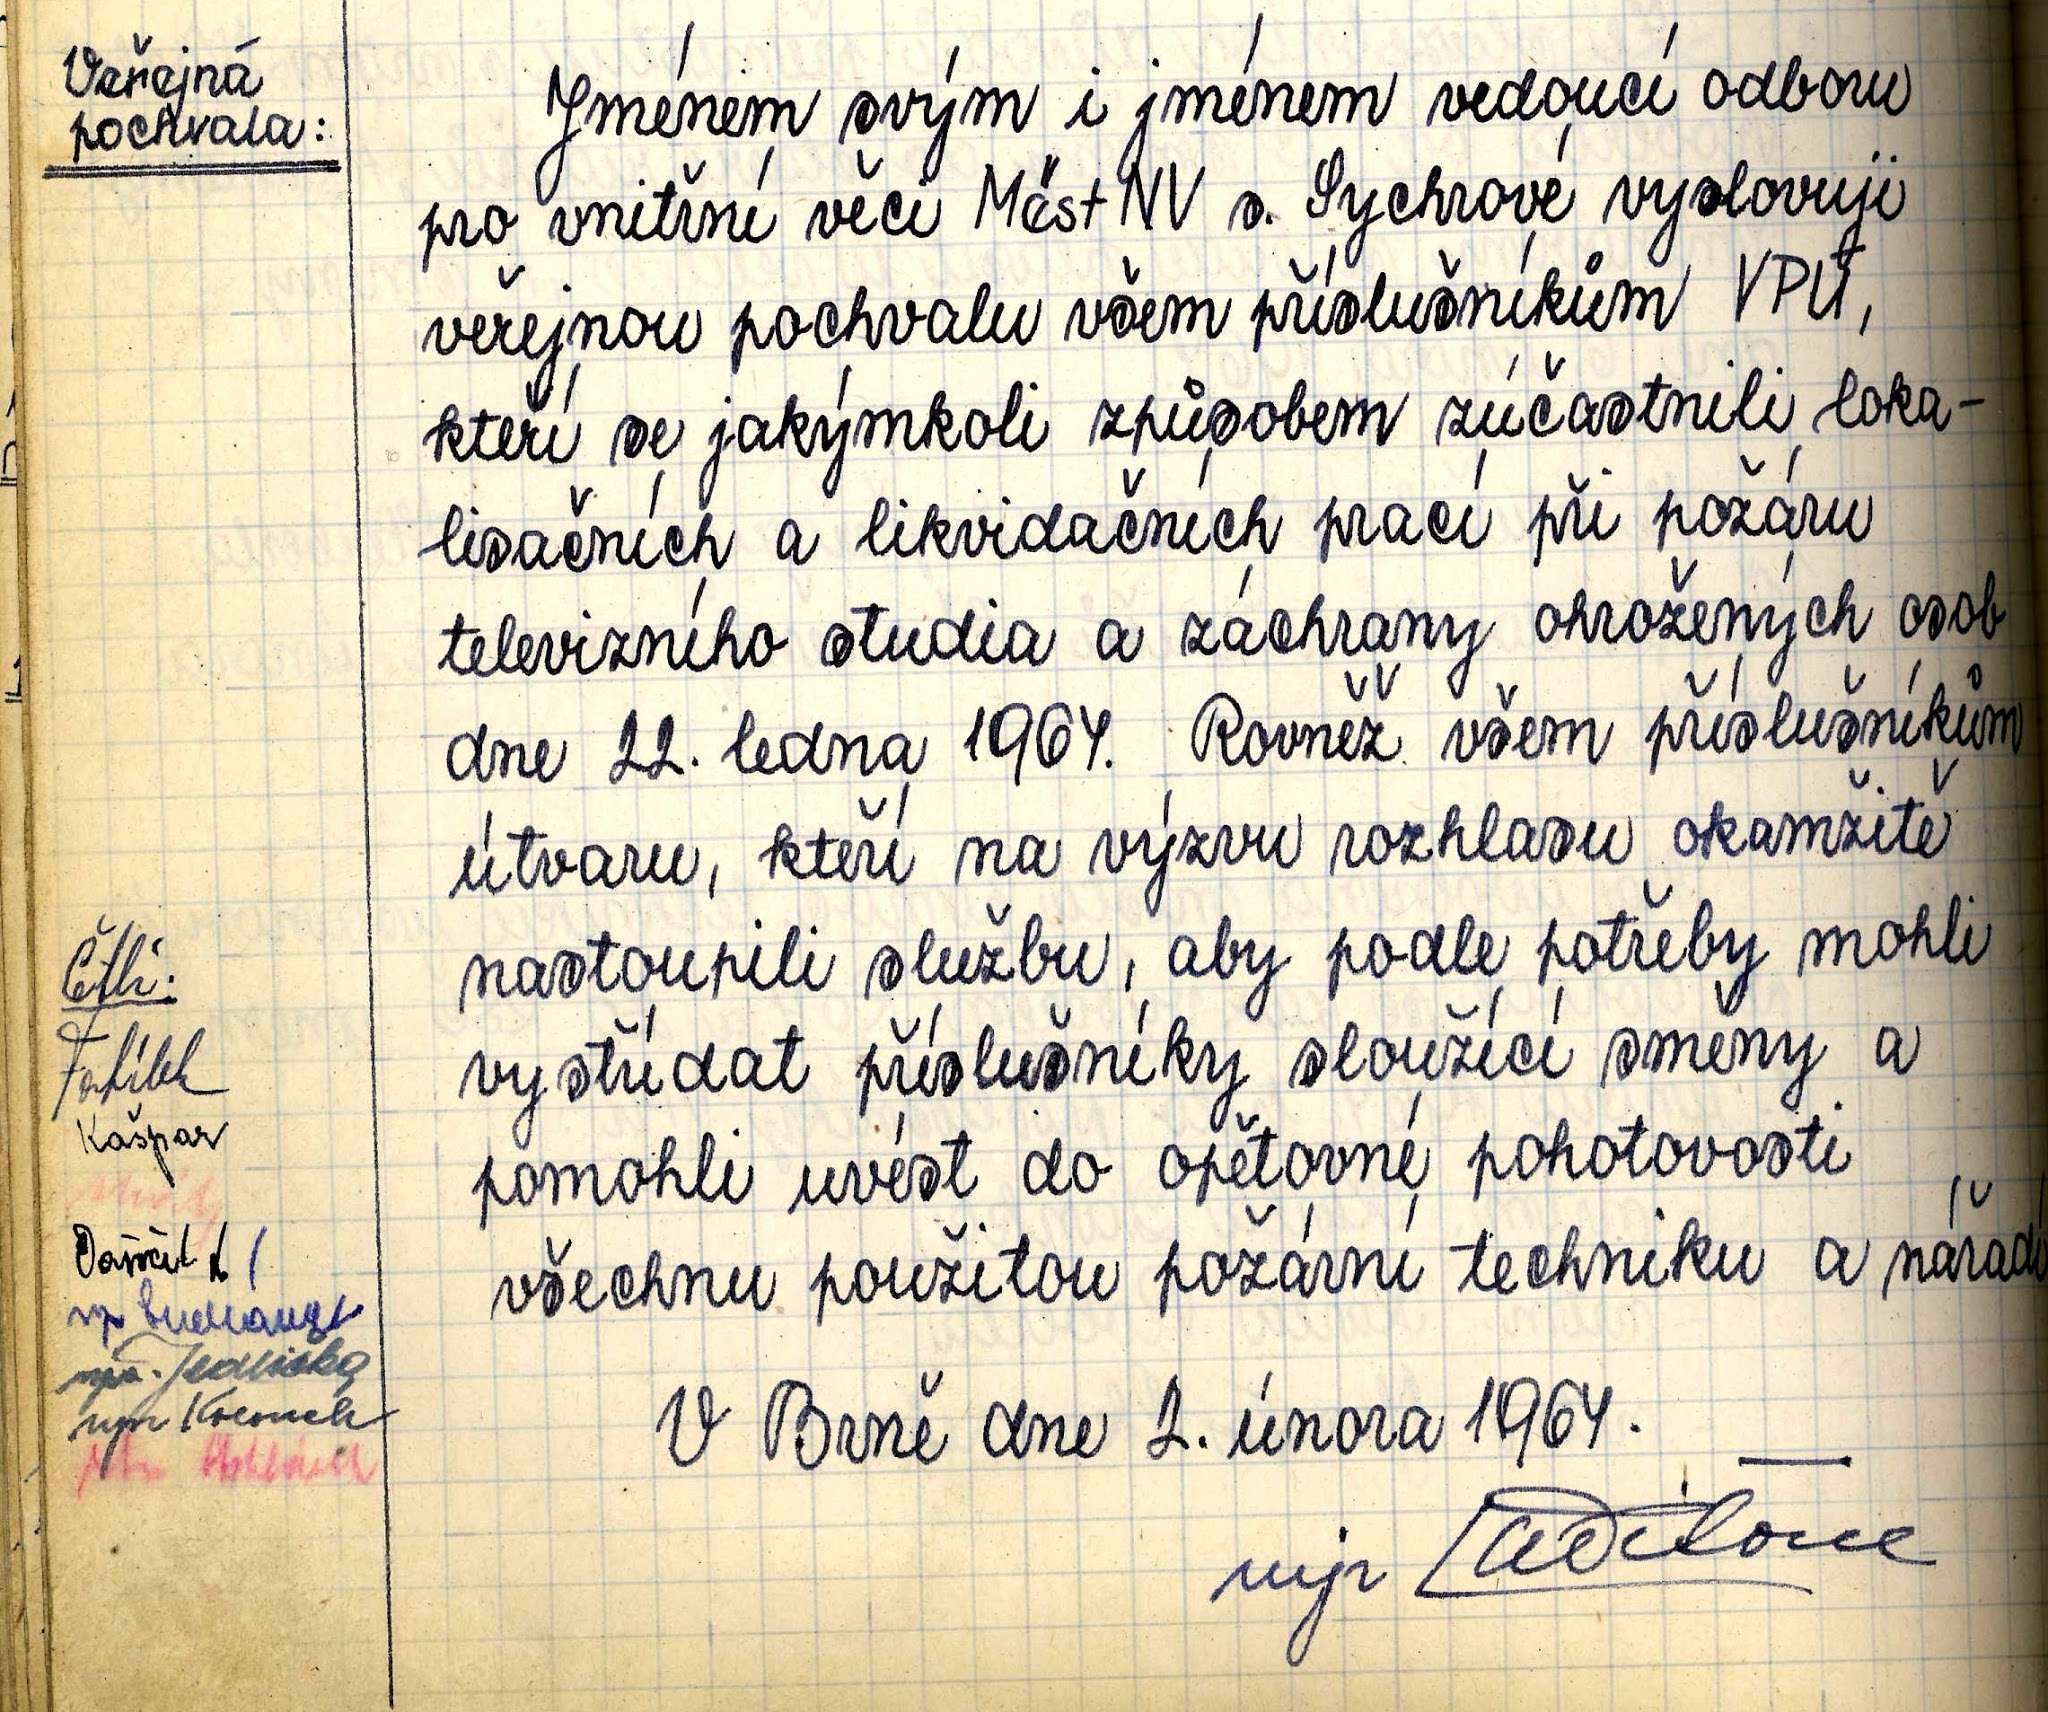 Veřejná
pochvala:
Jménem svým i jménem vedoucí odboru
pro vnitřní věci MěstNV s. Sychrové vyslovuji
veřejnou pochvalu všem příslušníkům VPÚ,
kteří se jakýmkoli způsobem zúčastnili loka-
lisačních a likvidačních prací při požáru
televizního studia a záchrany ohrožených osob
dne 22. ledna 1964. Rovněž všem příslušníkům
útvaru, kteří na výzvu rozhlasu okamžitě
nastoupili službu, aby podle potřeby mohli
vystřídat příslušníky sloužící směny a
pomohli uvést do opětovné pohotovosti
všechnu použitou požární techniku a nářadí
V Brně dne 2. února 1964.
mjr
Četli:
Kašpar
Jedlička